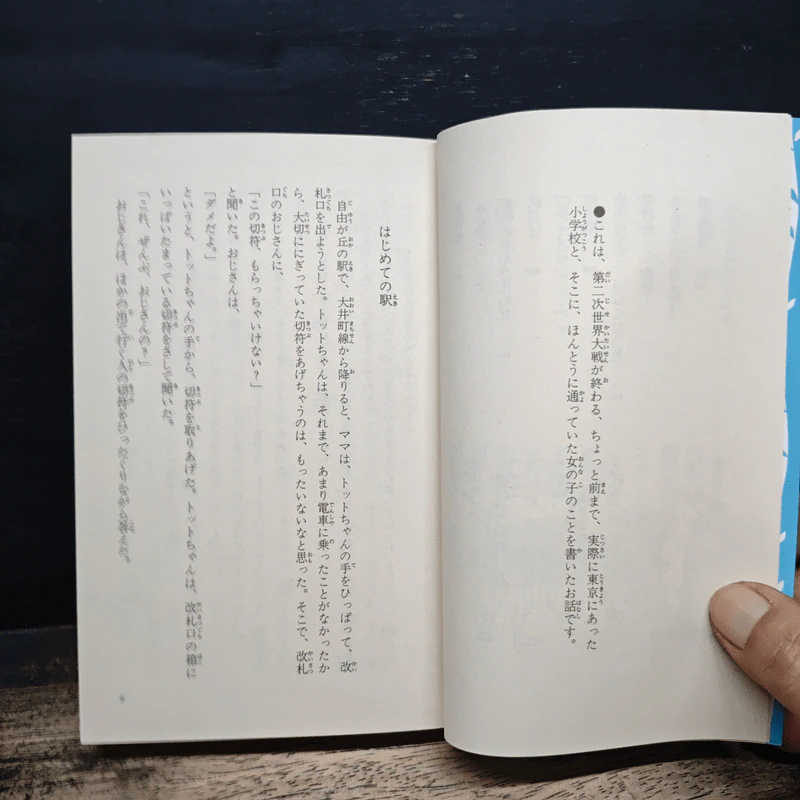 ●これは、第二次世界大戦が終わる、ちょっと前まで、実際に東京にあった
小学校と、そこに、ほんとうに通っていた女の子のことを書いたお話です。
はじめての駅
自由が丘の駅で、大井町線から降りると、ママは、トットちゃんの手をひっぱって、改
札口を出ようとした。トットちゃんは、それまで、あまり電車に乗ったことがなかったか
ら、大切ににぎっていた切符をあげちゃうのは、もったいないなと思った。そこで、改札
口のおじさんに、
「この切符、もらっちゃいけない？」
と聞いた。おじさんは、
「ダメだよ。」
というと、トットちゃんの手から、切符を取りあげた。トットちゃんは、改札口の箱に
いっぱいたまっている切符をさして聞いた。
「これ、ぜんぶ、おじさんの？」
おじさんは、ほかの出て行く人の切符をひったくりながら答えた。
9